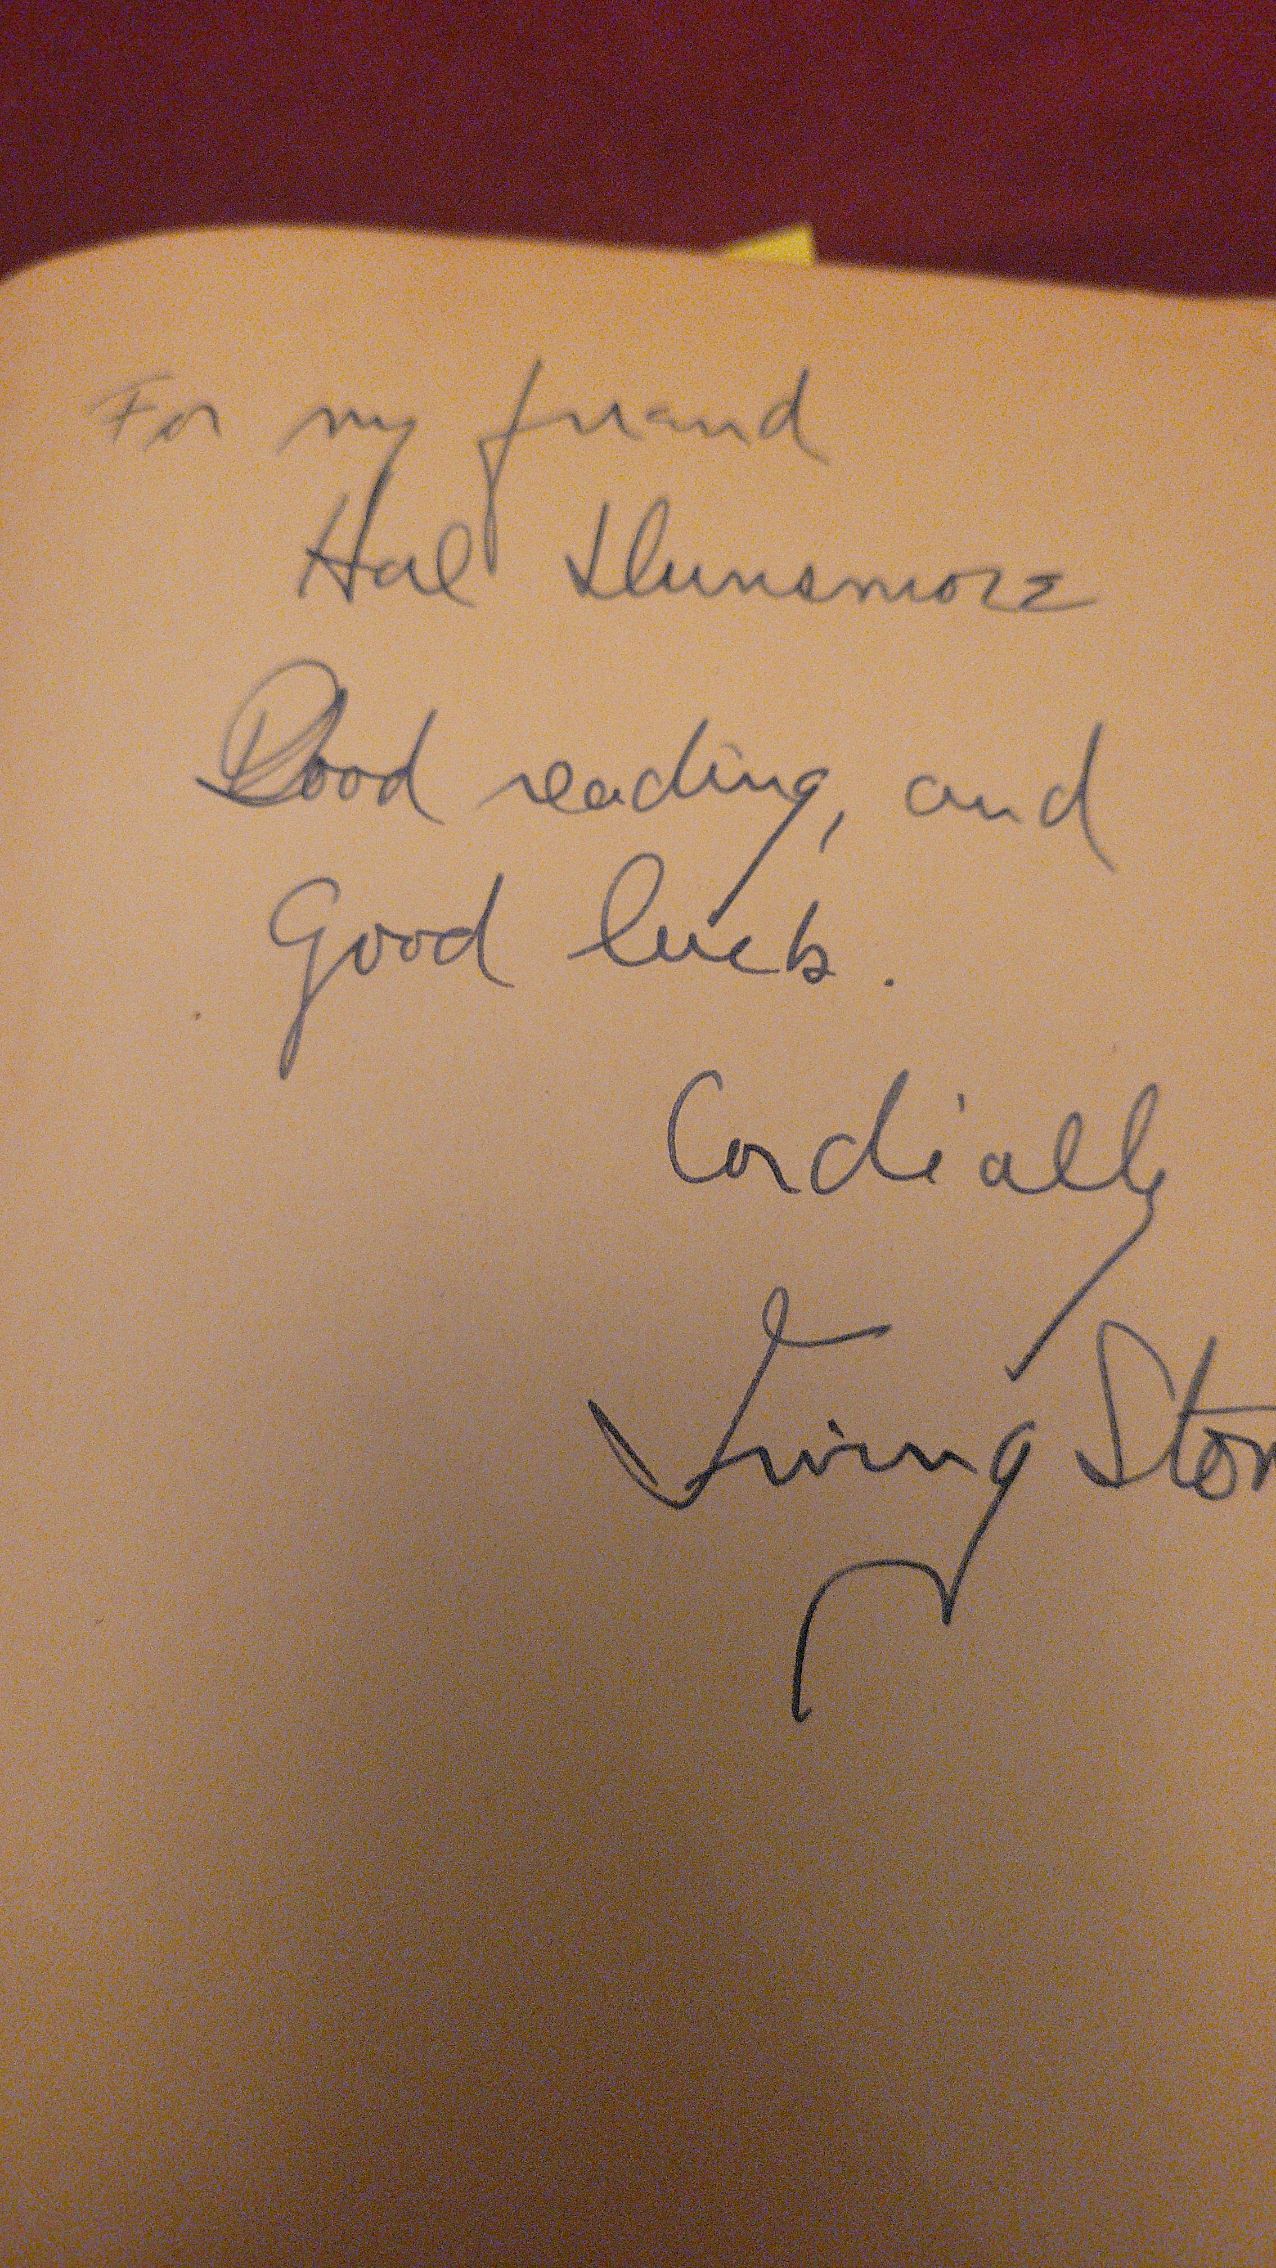 For my friend
Hal Dunsmore
Good reading, and
Good luck.
Cordially
Irving Ston